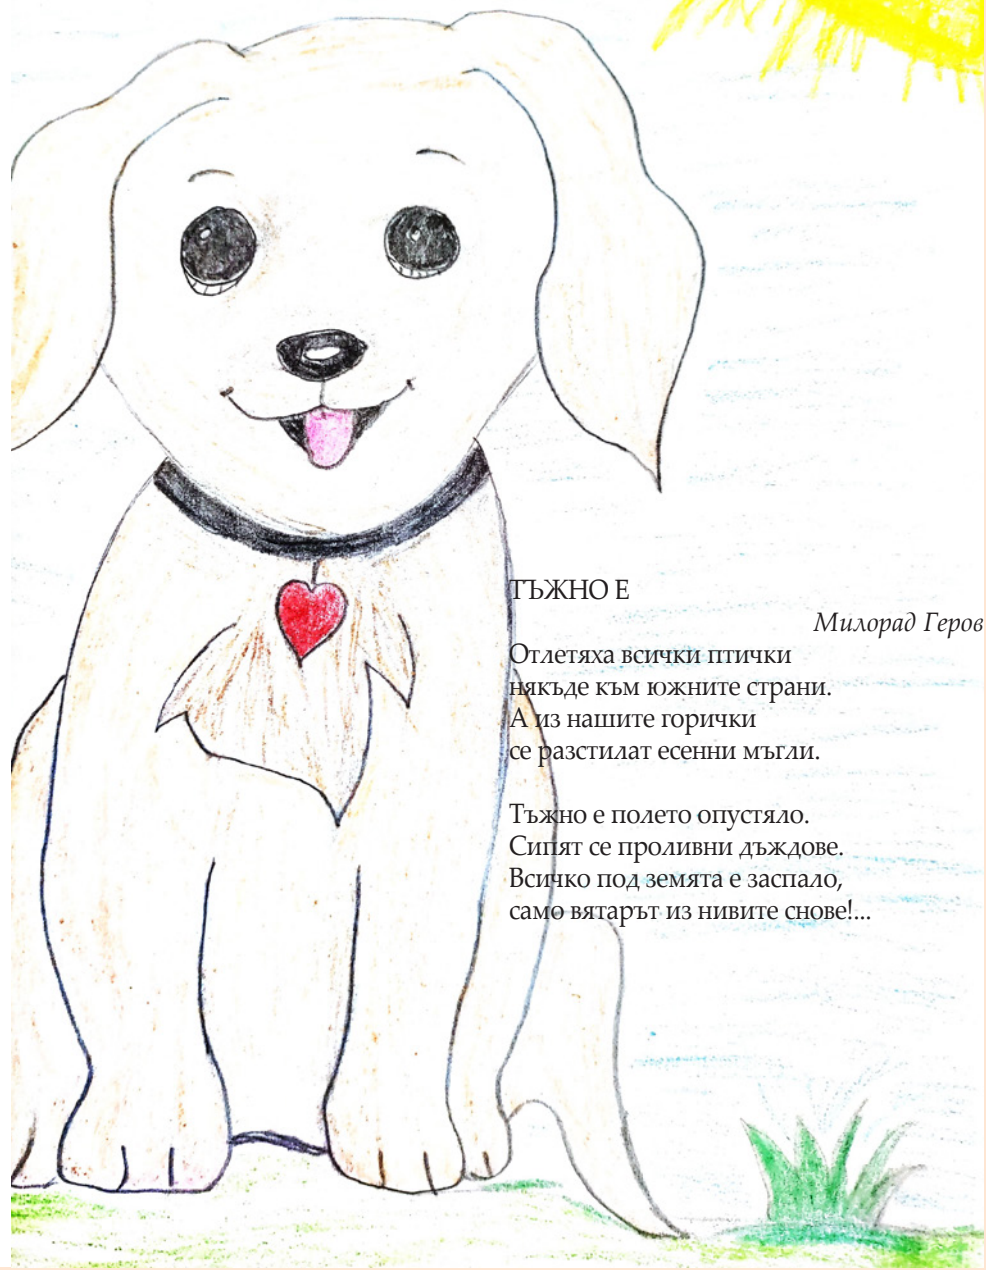 ТЪЖНО Е
Милорад Геров
Отлетяха всички птички
някъде към южните страни.
А из нашите горички
се разстилат есенни мъгли.
Тъжно е полето опустяло.
Сипят се проливни дъждове.
Всичко под земята е заспало,
само вятарът из нивите снове!...